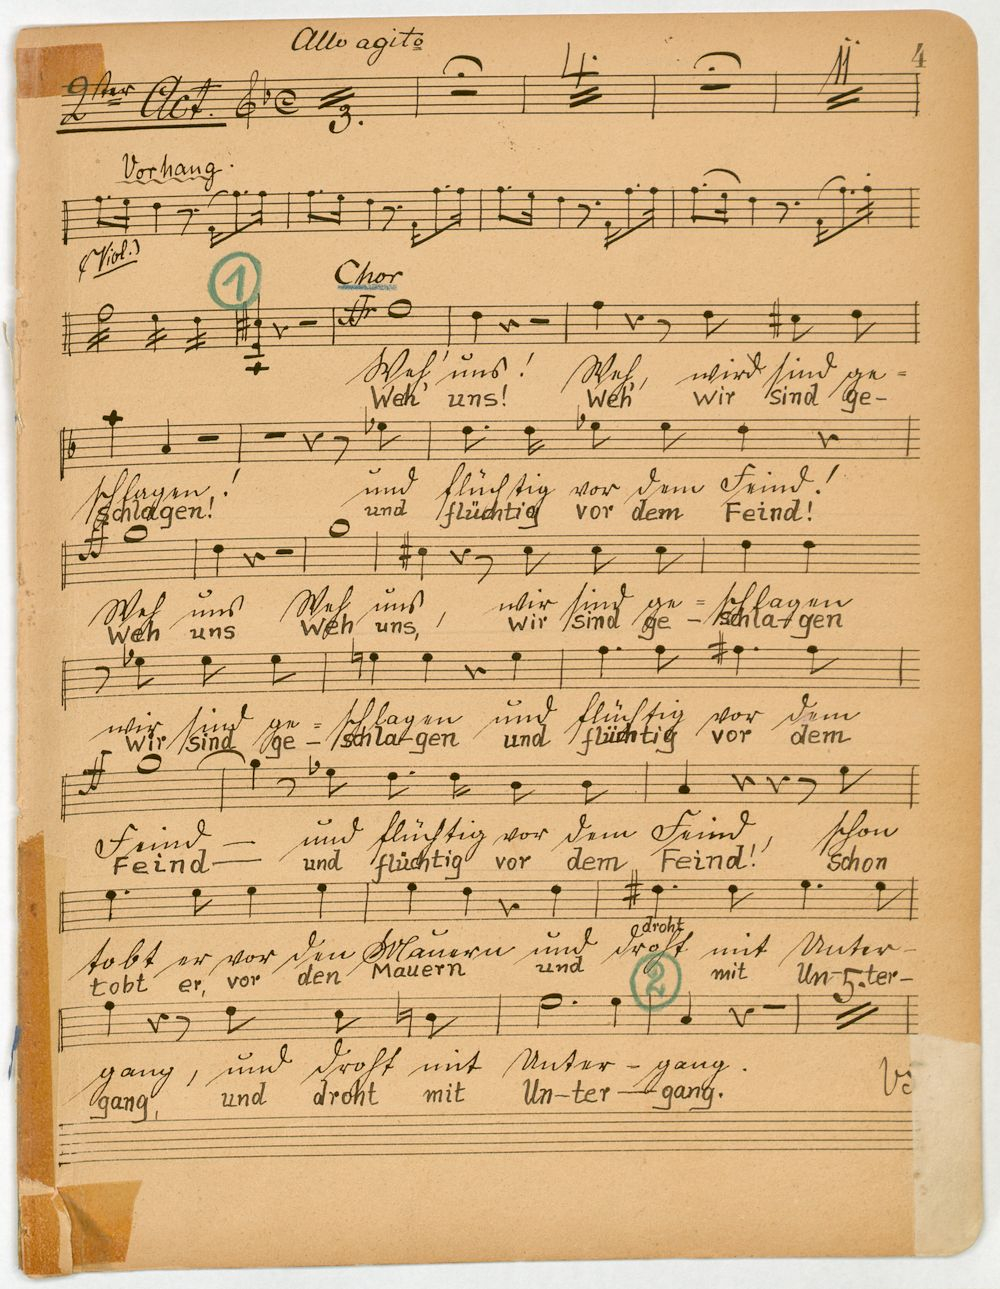 Allo agito
4
2ter Act.
3.
4.
11
Vorhang.
(Viol.)
1
Chor
Weh' uns! Weh, wird sind ge=
Weh' uns! Weh' wir sind ge-
schlagen! und flüchtig vor dem Feind!
schlagen! und flüchtig vor dem Feind!
Weh uns Weh uns, wir sind ge=schlagen
Weh uns Weh uns, wir sind ge-schla-gen
wir sind ge=schlagen und flüchtig vor dem
wir sind ge-schla-gen und flüchtig vor dem
Feind — und flüchtig vor dem Feind, schon
Feind — und flüchtig vor dem Feind! schon
droht
tobt er vor den Mauern und droht mit Unter-
tobt er, vor den Mauern und mit Un-ter-
2
5.
gang, und droht mit Unter-gang.
gang, und droht mit Un-ter-gang.